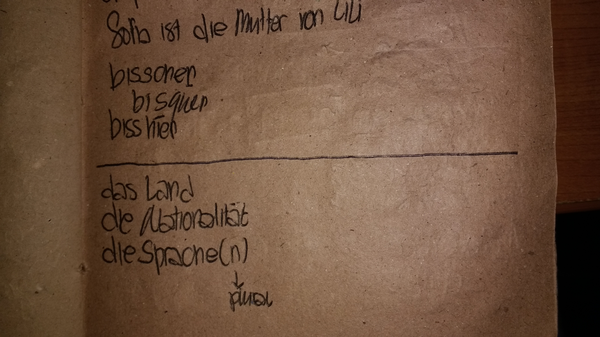 Sofia ist die Mutter von Lili
bisscher
bisquer
biss hier
das Land
die Nationalität
die Sprache(n)
plural